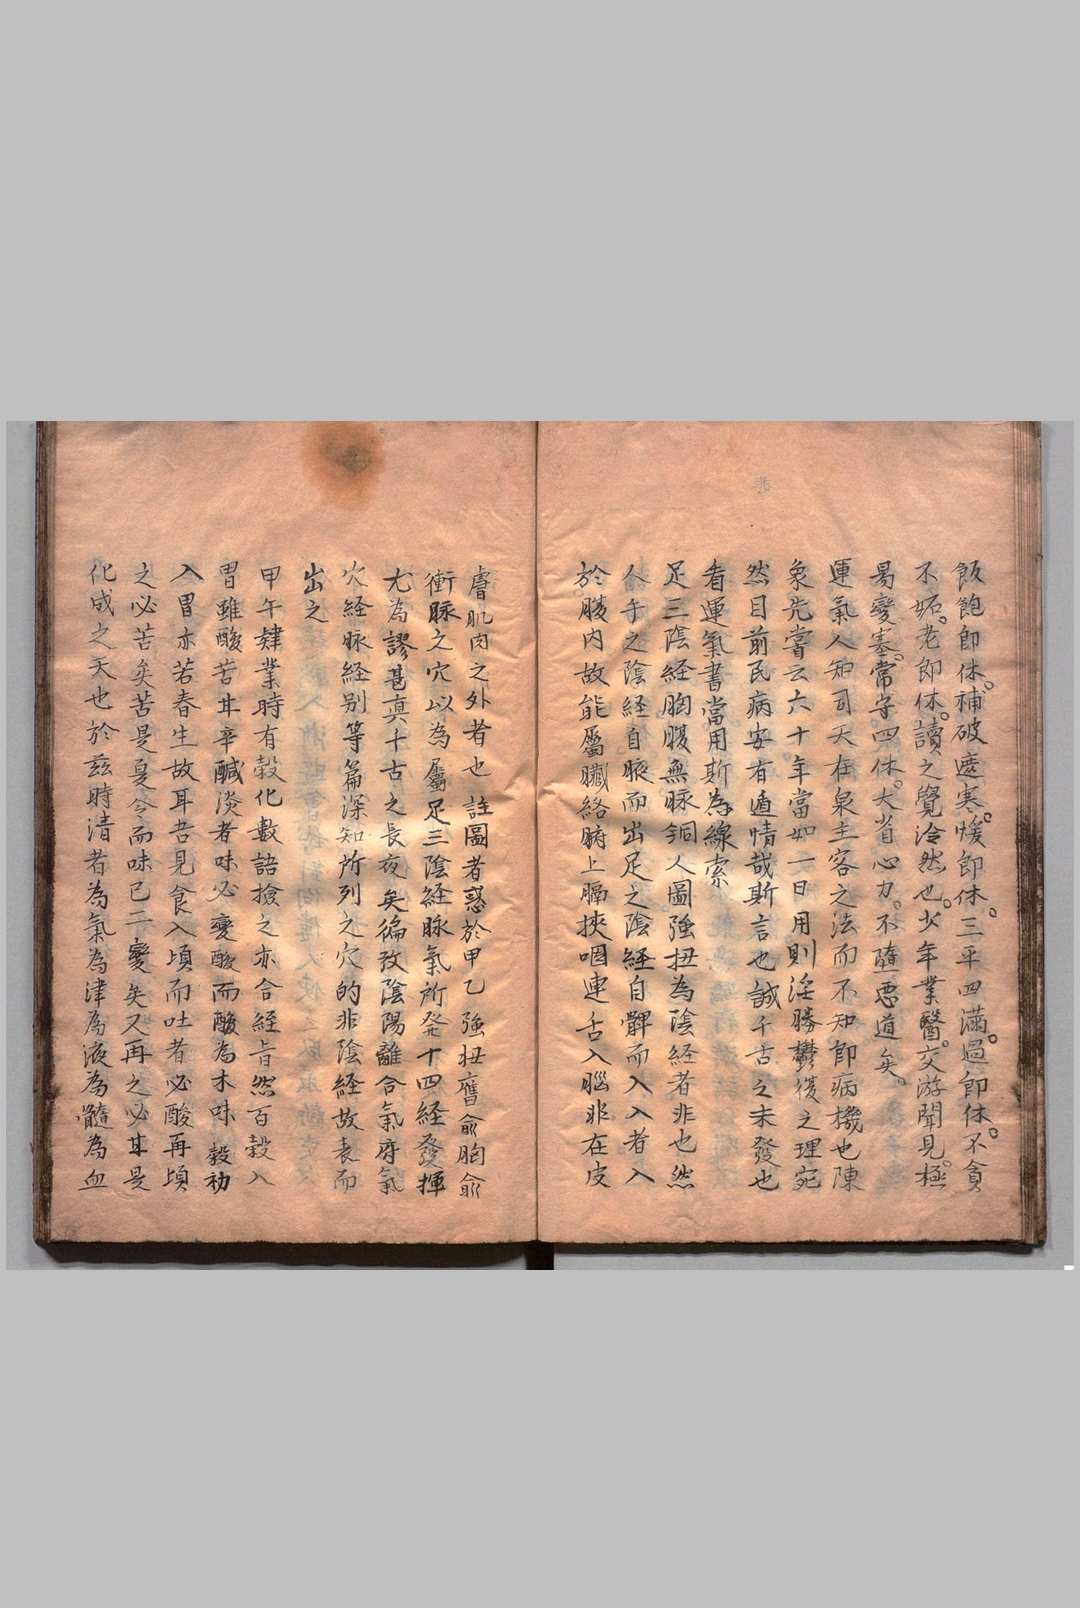 飯飽即休補破遮寒煖即休三平四滿過即休不貪
不妬老即休讀之覺冷然也少年業醫交游聞見極
易變塞常守四休大省心力不隨惡道矣
運氣人知司天在泉主客之法而不知即病機也陳
象先嘗云六十年當如一日用則淫勝鬱復之理宛
然目前民病安有遁情哉斯言也誠千古之未發也
看運氣書當用斯為線索
足三陰經胸腹無脉銅人圖強扭為陰經者非也然
人手之陰經自腋而出足之陰經自髀而入入者入
於腠内故能屬臟絡腑上膈挾咽連舌入腦非在皮
膚肌肉之外者也註圖者惑於甲乙強扭膺俞胸俞
衝脉之穴以為屬足三陰經脉氣所発十四經發揮
尤為謬甚真千古之長夜矣徧攷陰陽離合氣府氣
穴經脉経别等篇深知所列之穴的非陰経故表而
出之
甲午肄業時有穀化數語撿之亦合経旨然百穀入
胃雖酸苦甘辛鹹淡者味必變酸而酸為木味穀初
入胃亦若春生故耳吾見食入頃而吐者必酸再頃
之必苦矣苦是夏令而味已二變矣又再之必甘是
化成之天也於兹時清者為氣為津為液為髓為血